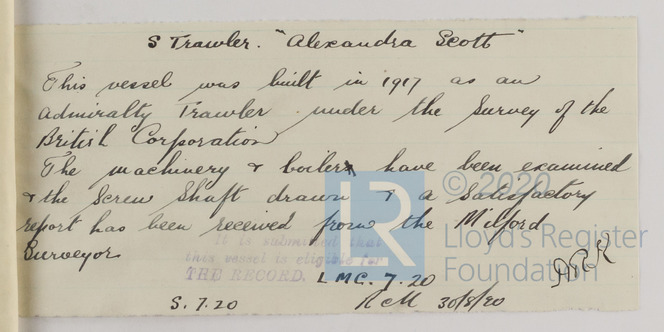 S Trawler. "Alexandra Scott"
This vessel was built in 1917 as an
Admiralty Trawler under the Survey of the
British Corporation
The machinery & boilers have been examined
& the Screw Shaft drawn & a Satisfactory
report has been received from the Milford
Surveyors
It is submitted that
this vessel is eligible for
THE RECORD. LMC. 7.20
S. 7.20 30/8/20
LR
© 2020
Lloyd's Register
Foundation